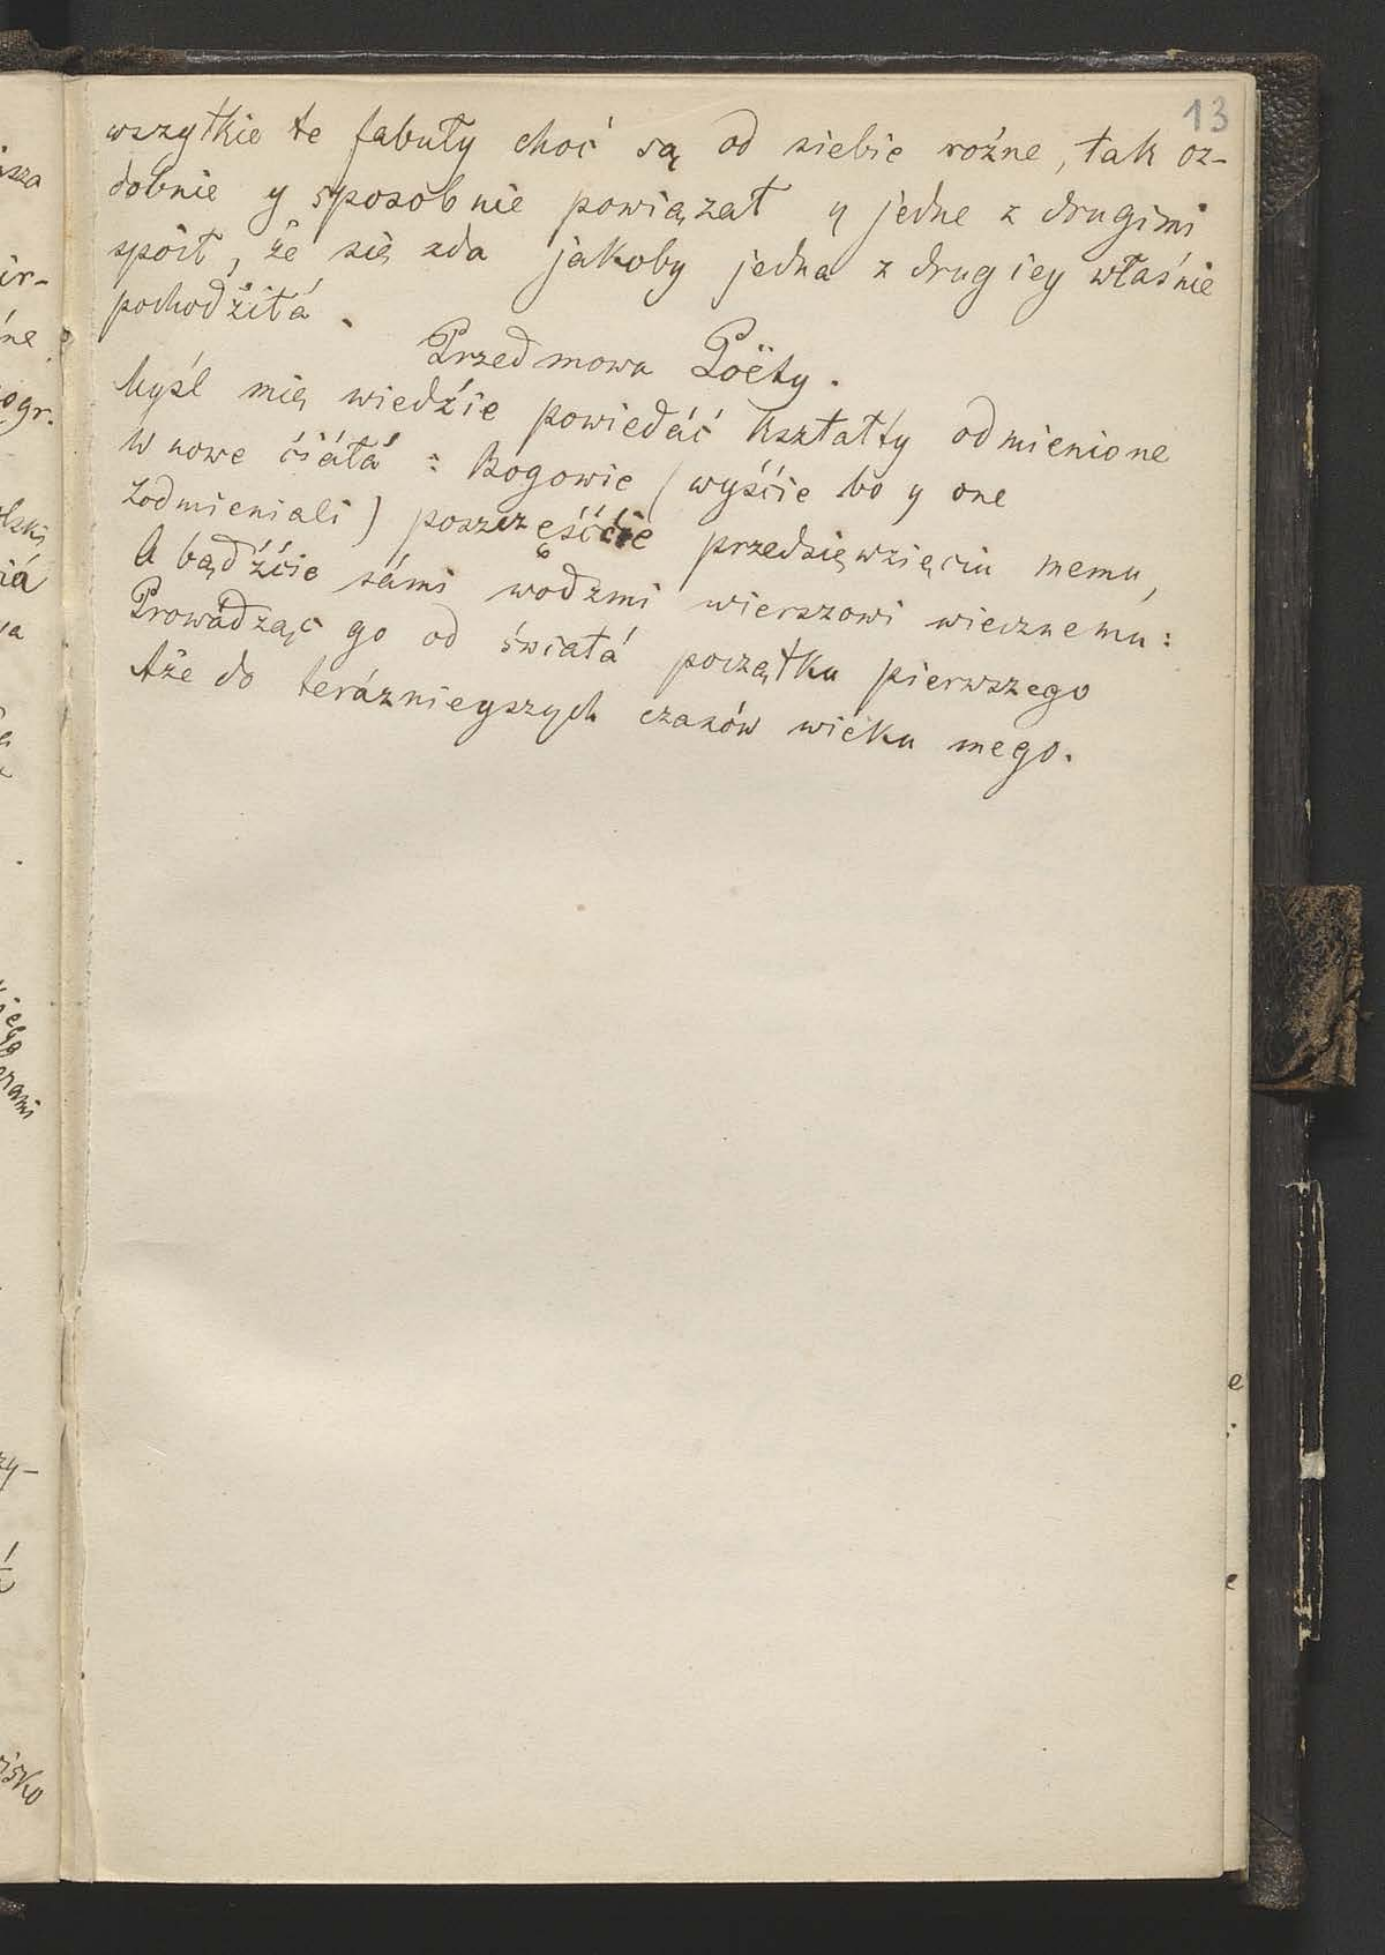 13
wszytkie te fabuły choć są od siebie rożne, tak oz-
dobnie y sposobnie powiązał y jedne z drugimi
spoił, że się zda jakoby jedna z drugiey właśnie
pochodźiłá.
Przedmowa Poëty.
Myśl mię wiedźie powiedáć kształty odmienione
W nowe ćiáłá: Bogowie (wyśćie bo y one
Zodmieniali) poszczęśćcie przedsięwzięciu memu,
A bądźćie sámi wodzmi wierszowi wiecznemu:
Prowádząc go od świátá początku pierwszego
Aże do teráznieyszych czasów wieku mego.